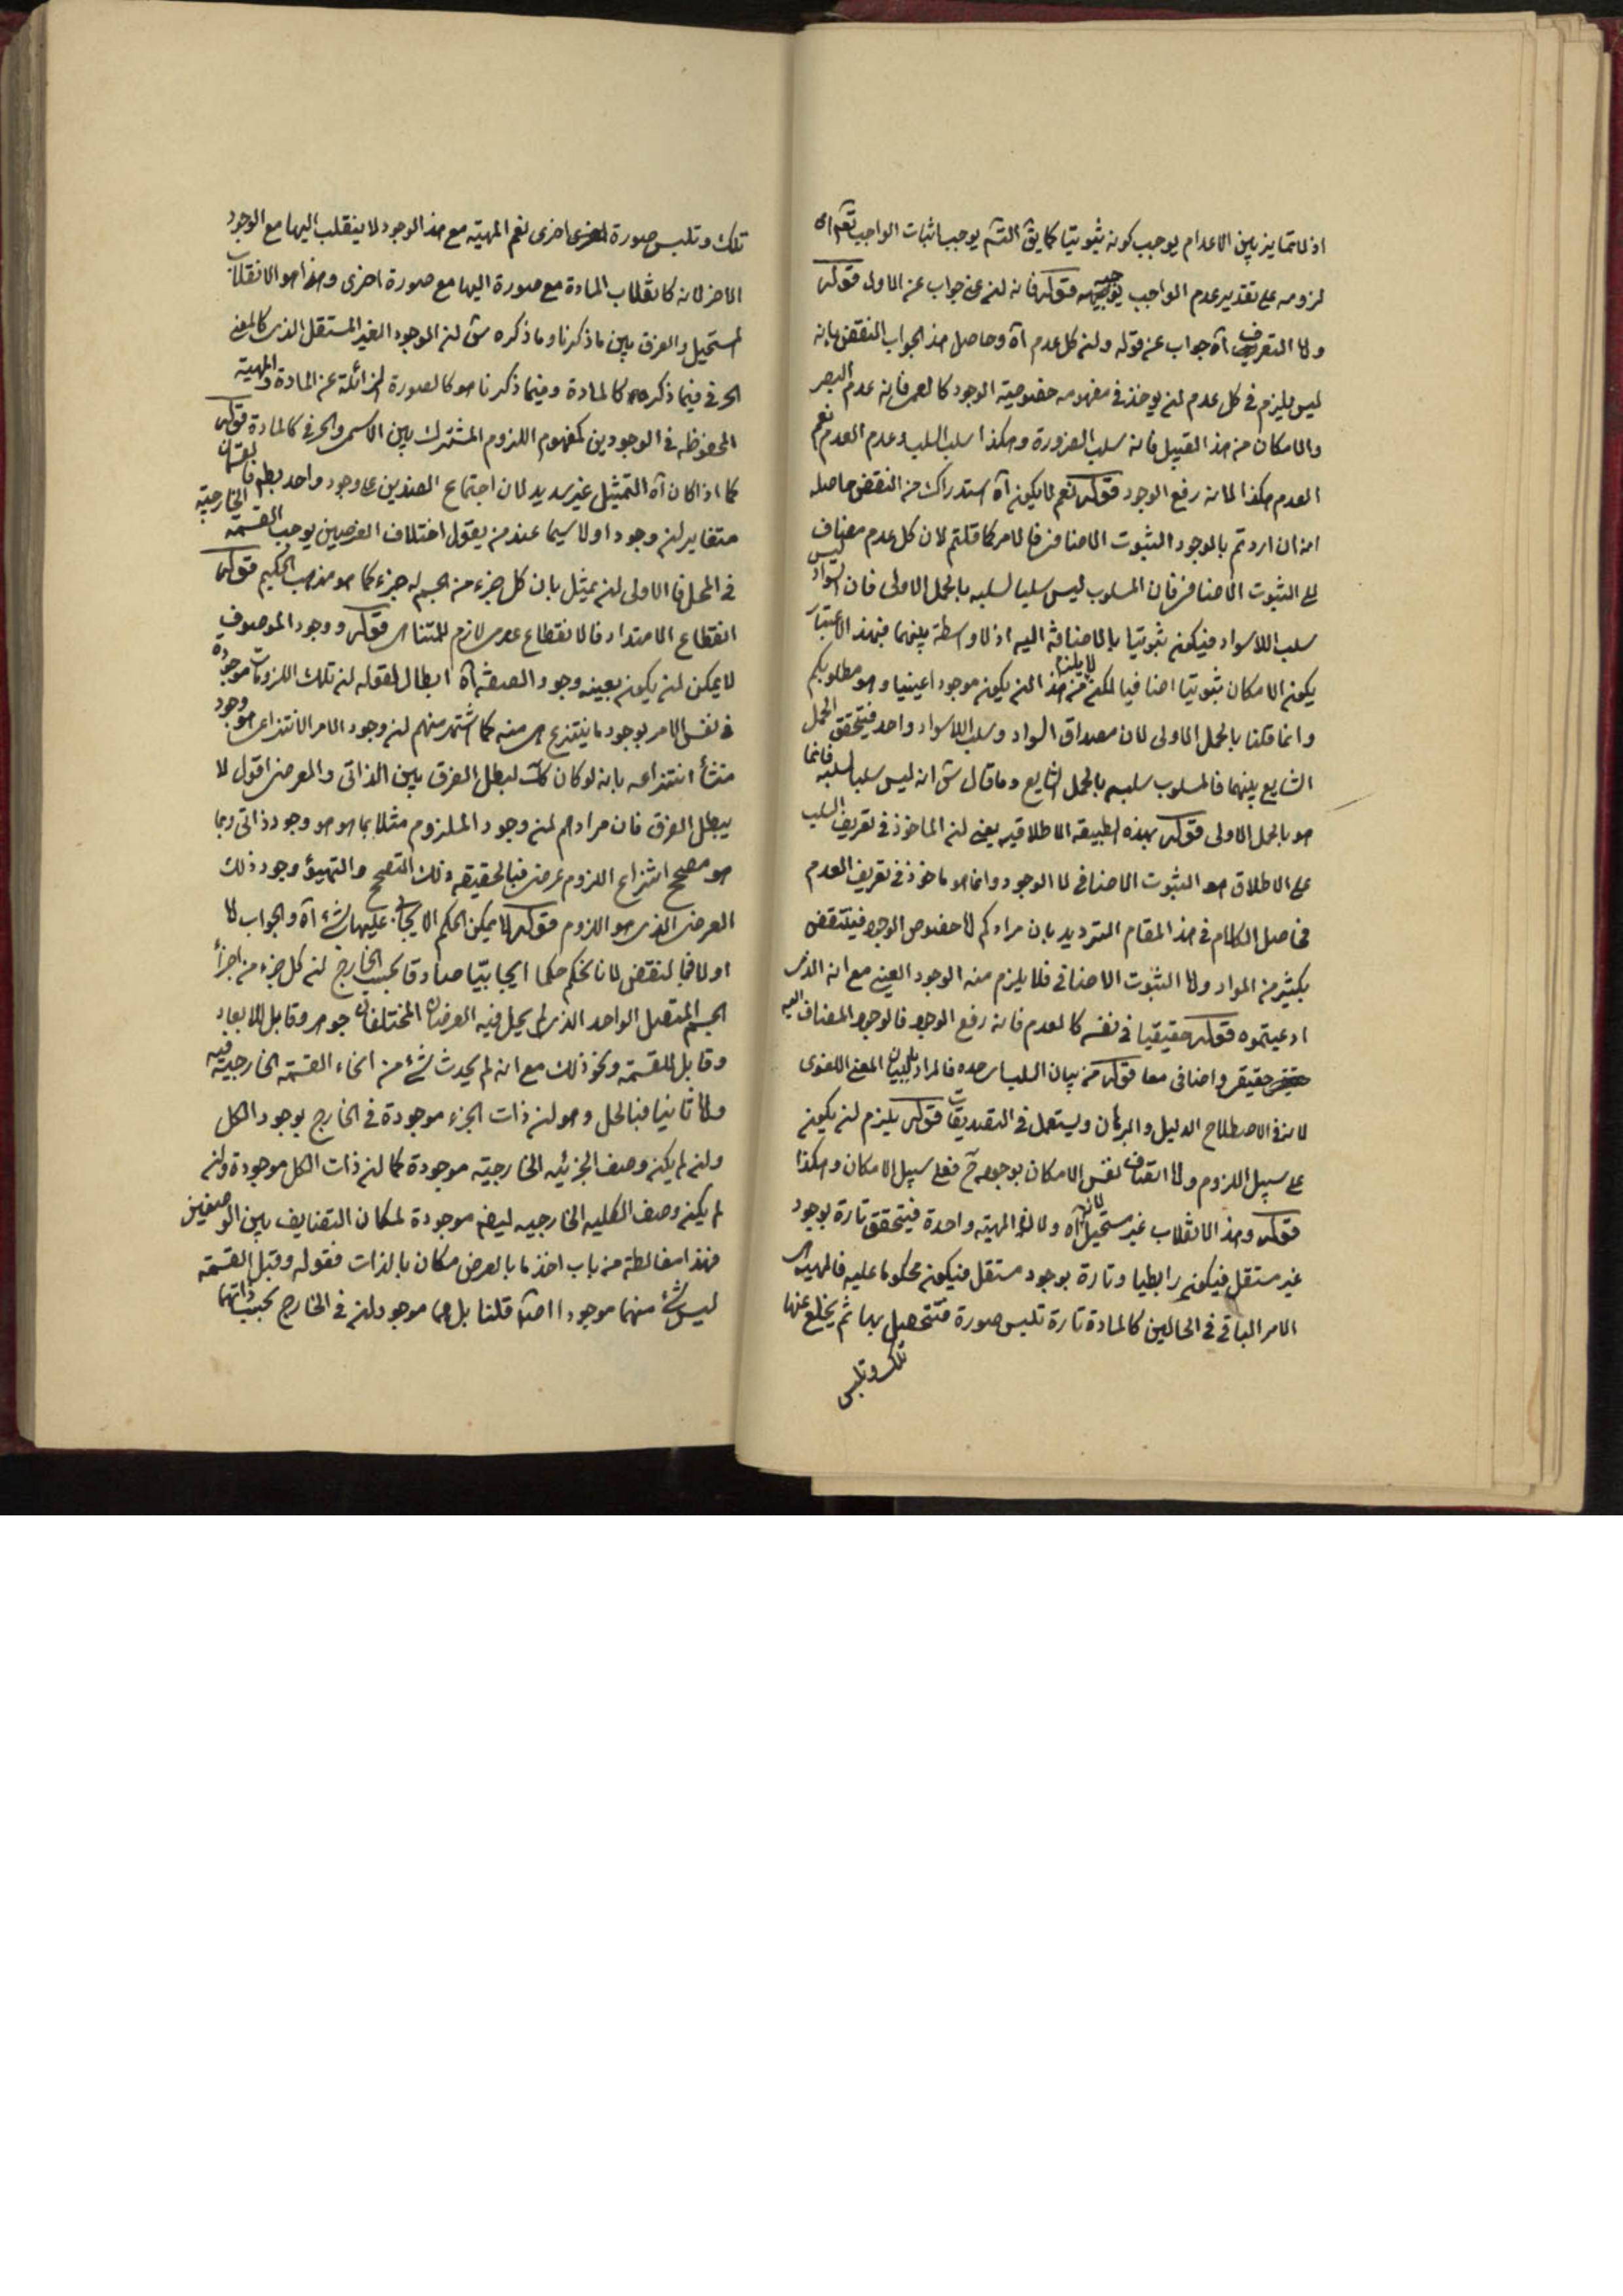 اذ لا تمايز بين الاعدام يوجب كونه ثبوتيا كما يق التشم يوجب اثبات الواجب تعم اى
لزومه على تقدير عدم الواجب يوجبه قوله فانه لنه عن جواب عن الاول قوله
ولا التعريف آه جواب عن قوله ولنه كل عدم آه وحاصل هذا الجواب النقض بانه
ليس يلزم فى كل عدم لنه يوخذ فى مفهومه خصوصية الوجود كالعمى فانه عدم البصر
والامكان من هذا القبيل فانه سلب الضرورة وهكذا سلب السلب وعدم العدم نعم
العدم هكذا لانه رفع الوجود قوله نعم لا يكون آه استدراك من النقض حاصله
انه ان اردتم بالوجود الثبوت الاضافى فالامر كما قلتم لان كل عدم مضاف
الى الثبوت الاضافى فان المسلوب ليس سلبا لسلبه بالحمل الاولى فان السواد ليس
سلب اللاسواد فيكون ثبوتيا بالاضافة اليه اذ لا واسطة بينهما فبهذا الاعتبار
يكون الامكان ثبوتيا اضافيا لكن لا يلزم من هذا لنه يكون موجودا عينيا وهو مطلوبكم
وانما قلنا بالحمل الاولى لان مصداق السواد وسلب اللاسواد واحد فيتحقق الحمل
الشايع بينهما فالمسلوب سلبه بالحمل الشايع وما قال ش انه ليس سلبا لسلبه فانما
هو بالحمل الاولى قوله بهذه الطبيعة الاطلاقيه يعنى لنه الماخوذ فى تعريف السلب
على الاطلاق هو الثبوت الاضافى لا الوجود وانما هو ماخوذ فى تعريف العدم
فحاصل الكلام فى هذا المقام الترديد بان مرادكم لا خصوص الوجود فينتقض
بكثير من المواد ولا الثبوت الاضافى فلا يلزم منه الوجود العينى مع انه الذى
ادعيتموه قوله حقيقيا فى نفسه كالعدم فانه رفع الوجود فالوجود المضاف اليه
حقيقى واضافى معا قوله من بيان السلب حده فالمراد بالبيان المعنى اللغوى
لانه فى الاصطلاح الدليل والبرهان ويستعمل فى التصديقات قوله يلزم لنه يكون
على سبيل اللزوم ولا اتصاف نفس الامكان بوجوده ح فعلى سبيل الامكان وهكذا
قوله وهذا الانقلاب غير مستحيل آه ولان المهيّة واحدة فيتحقق تارة بوجود
غير مستقل فيكون رابطيا وتارة بوجود مستقل فيكون محكوما عليه فالمهية هى
الامر الباقى فى الحالين كالمادة تارة تلبس صورة فتتحصل بها ثم يخلع عنها
تلك وتلبس
تلك وتلبس صورة اخرى نعم المهيّة مع هذا الوجود لا ينقلب اليها مع الوجود
الاخر لانه كانقلاب المادة مع صورة اليها مع صورة اخرى وهذا هو الانقلاب
المستحيل والفرق بين ما ذكرنا وما ذكره ش لنه الوجود الغير المستقل الذى كالمعنى
الحرفى فيما ذكره كالمادة وفيما ذكرنا هو كالصورة الزائلة عن المادة والمهيّة
المحفوظه فى الوجودين كمفهوم اللزوم المشترك بين الاسمى والحرفى كالمادة قوله
كما اذا كان آه التمثيل غير سديد لان اجتماع الضدين على وجود واحد بط
متغايرلنه وجودا ولا سيما عند من يقول اختلاف العرضين يوجب القسمة الخارجيّة
فى المحل فالاولى لنه يمثل بان كل جزء من الجسم له جزء كما هو مذهب الحكيم قوله كما
انقطاع الامتداد فالانقطاع عدمى لازم للمتناهى قوله ووجود الموصوف
لا يمكن لنه يكون بعينه وجود الصفة آه ابطال لقوله لنه تلك اللزومات موجودة
فى نفس الامر بوجود ما ينتزع هى منه كما اشتهر منهم لنه وجود الامر الانتزاعى هو وجود
منشأ انتزاعه بانه لو كان كك لبطل الفرق بين الذاتى والعرضى اقول لا
يبطل الفرق فان مرادهم لنه وجود الملزوم مثلا بما هو هو وجود ذاتى وبما
هو مصحح انتزاع اللزوم عرضى فبالحقيقه ذلك التصحح والتهيؤ وجود ذلك
العرضى الذى هو اللزوم قوله لا يمكن الحكم الايجابى عليها بشئ آه والجواب لا
اولا فبالنقض لانا نحكم حكما ايجابيّا صادقا بحسب الخارج لنه كل جزء من اجزأ
الجسم المتصل الواحد الذى لم يحل فيه العرضان المختلفان جوهر وقابل للابعاد
وقابل للقسمة ونحو ذلك مع انه لم يحدث شئ من انحاء القسمة الخارجيّة فيه
ولا ثانيا فبالحل وهو لنه ذات الجزء موجودة فى الخارج بوجود الكل
ولنه لم يكن وصف الجزئيه الخارجيّة موجودة كما لنه ذات الكل موجودة ولنه
لم يكن وصف الكليه الخارجيه ايضه موجودة لمكان التضايف بين الوصفين
فهذا مغالطة من باب اخذ ما بالعرض مكان بالذات فقوله وقبل القسمة
ليس شئ منهما موجودا اصلا قلنا بل هما موجودلنه فى الخارج بحسب ذاتهما